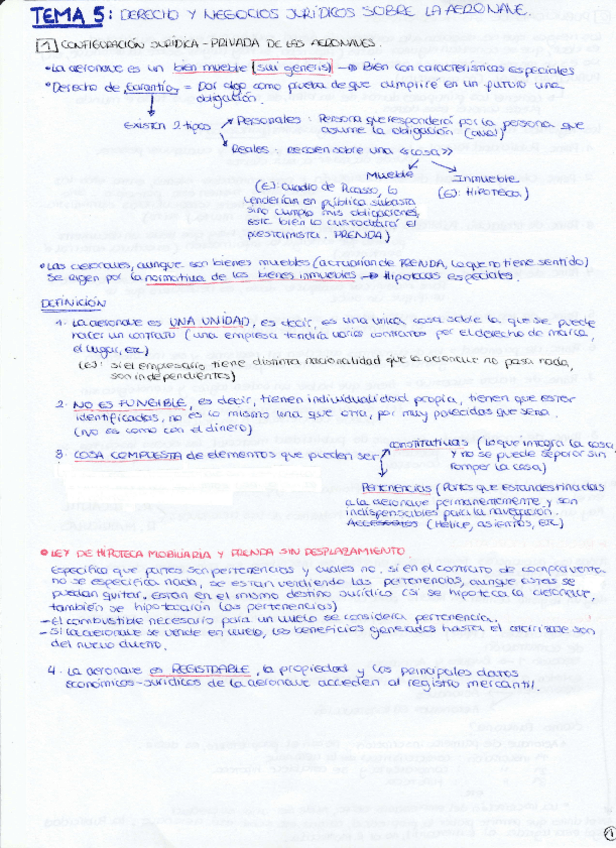 TEMA 5: DERECHO Y NEGOCIOS JURÍDICOS SOBRE LA AERONAVE.
1 CONFIGURACIÓN JURÍDICA-PRIVADA DE LAS AERONAVES.
• La aeronave es un bien mueble (sui generis) → Bien con características especiales
• Derecho de garantía = Dar algo como prueba de que cumpliré en un futuro una
obligación.
Existen 2 tipos
Personales: Persona que responderá por la persona que
asume la obligación (aval)
Reales: Recaen sobre una «cosa»
Mueble
(Ej: cuadro de Picasso, lo
venderían en pública subasta
sino cumplo mis obligaciones,
este bien lo custodiará el
prestamista. PRENDA)
Inmueble
(Ej: HIPOTECA.)
• Las aeronaves, aunque son bienes muebles (actuarían de PRENDA, lo que no tiene sentido)
se rigen por la normativa de los bienes inmuebles → Hipotecas especiales.
DEFINICIÓN
1. La aeronave es UNA UNIDAD, es decir, es una única cosa sobre la que se puede
hacer un contrato (una empresa tendría varios contratos por el derecho de marca,
el lugar, etc)
(Ej: si el empresario tiene distinta nacionalidad que la aeronave no pasa nada,
son independientes)
2. NO ES FUNGIBLE, es decir, tienen individualidad propia, tienen que estar
identificadas, no es lo mismo una que otra, por muy parecidas que sean.
(no es como con el dinero)
3. COSA COMPUESTA de elementos que pueden ser
constitutivas (lo que integra la cosa
y no se puede separar sin
romper la cosa)
Pertenencias (Partes que están destinadas
a la aeronave permanentemente y son
indispensables para la navegación.
Accesorios (Hélice, asientos, etc)
• LEY DE HIPOTECA MOBILIARIA Y PRENDA SIN DESPLAZAMIENTO.
Especifica que partes son pertenencias y cuales no. si en el contrato de compraventa
no se especifica nada, se están vendiendo las pertenencias, aunque estas se
puedan quitar. Están en el mismo destino jurídico (si se hipoteca la aeronave,
también se hipotecarán las pertenencias)
- El combustible necesario para un vuelo se considera pertenencia.
- Si la aeronave se vende en vuelo, los beneficios generados hasta el aterrizaje son
del nuevo dueño.
4. La aeronave es REGISTRABLE, la propiedad y los principales datos
económicos-jurídicos de la aeronave acceden al registro mercantil.
1